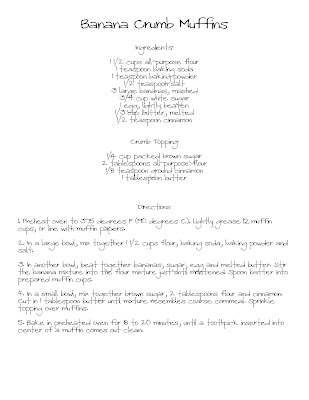 Banana Crumb Muffins
Ingredients:
1 1/2 cups all-purpose flour
1 teaspoon baking soda
1 teaspoon baking powder
1/2 teaspoon salt
3 large bananas, mashed
3/4 cup white sugar
1 egg, lightly beaten
1/3 cup butter, melted
1/2 teaspoon cinnamon
Crumb Topping:
1/4 cup packed brown sugar
2 tablespoons all-purpose flour
1/8 teaspoon ground cinnamon
1 tablespoon butter
Directions
1. Preheat oven to 375 degrees F (190 degrees C). Lightly grease 12 muffin
cups, or line with muffin papers.
2. In a large bowl, mix together 1 1/2 cups flour, baking soda, baking powder and
salt.
3. In another bowl, beat together bananas, sugar, egg and melted butter. Stir
the banana mixture into the flour mixture just until moistened. Spoon batter into
prepared muffin cups.
4. In a small bowl, mix together brown sugar, 2 tablespoons flour and cinnamon.
Cut in 1 tablespoon butter until mixture resembles coarse cornmeal. Sprinkle
topping over muffins.
5. Bake in preheated oven for 18 to 20 minutes, until a toothpick inserted into
center of a muffin comes out clean.